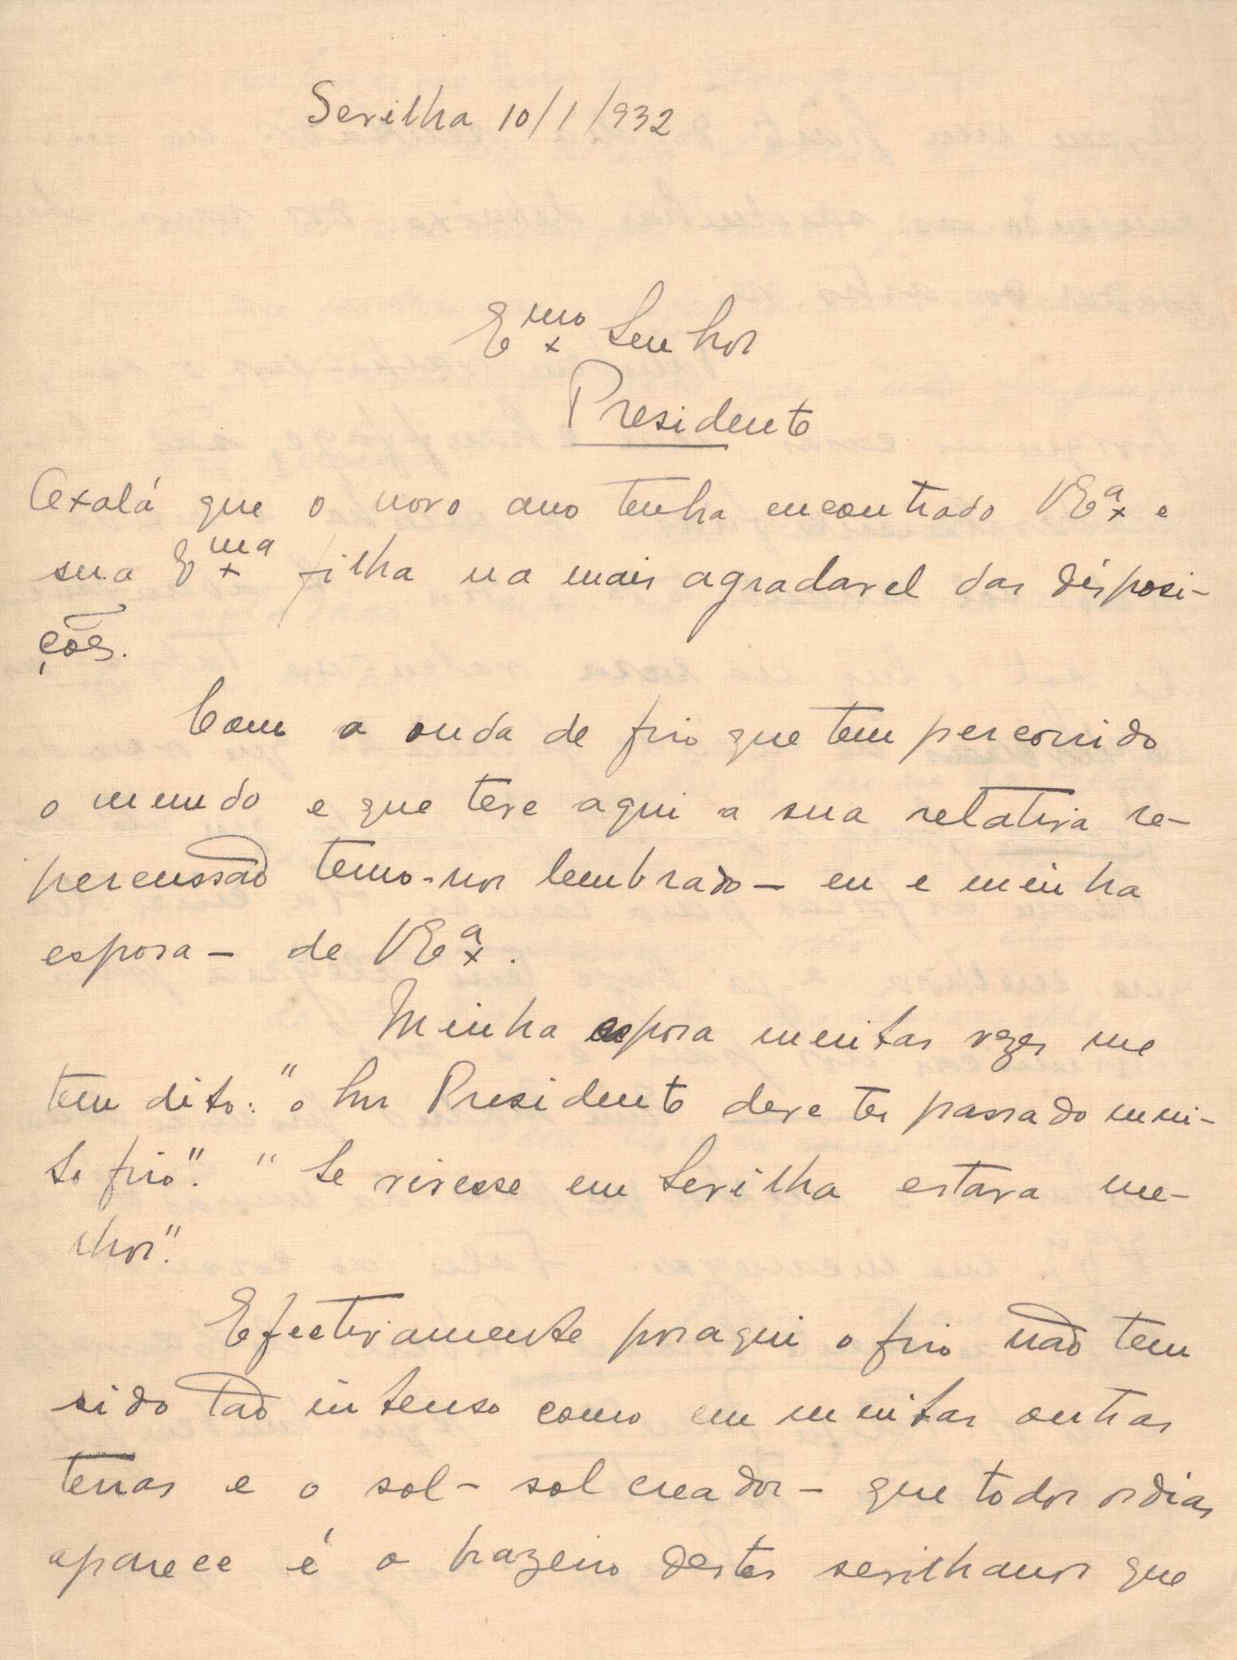 Sevilha 10/1/932
Exmo Senhor
Presidente
Oxalá que o novo ano tenha encontrado VExª e
sua Exma filha na mais agradavel das disposi-
ções.
Com a onda de frio que tem percorrido
o mundo e que teve aqui a sua relativa re-
percussão temo-nos lembrado - eu e minha
esposa - de VExª.
Minha esposa muitas vezes me
tem dito: "o Snr Presidente deve ter passado mui-
to frio". "Se vivesse em Sevilha estava me-
lhor".
Efectivamente por aqui o frio não tem
sido tão intenso como em muitas outras
terras e o sol - sol creador - que todos os dias
aparece é o brazeiro destes sevilhanos que